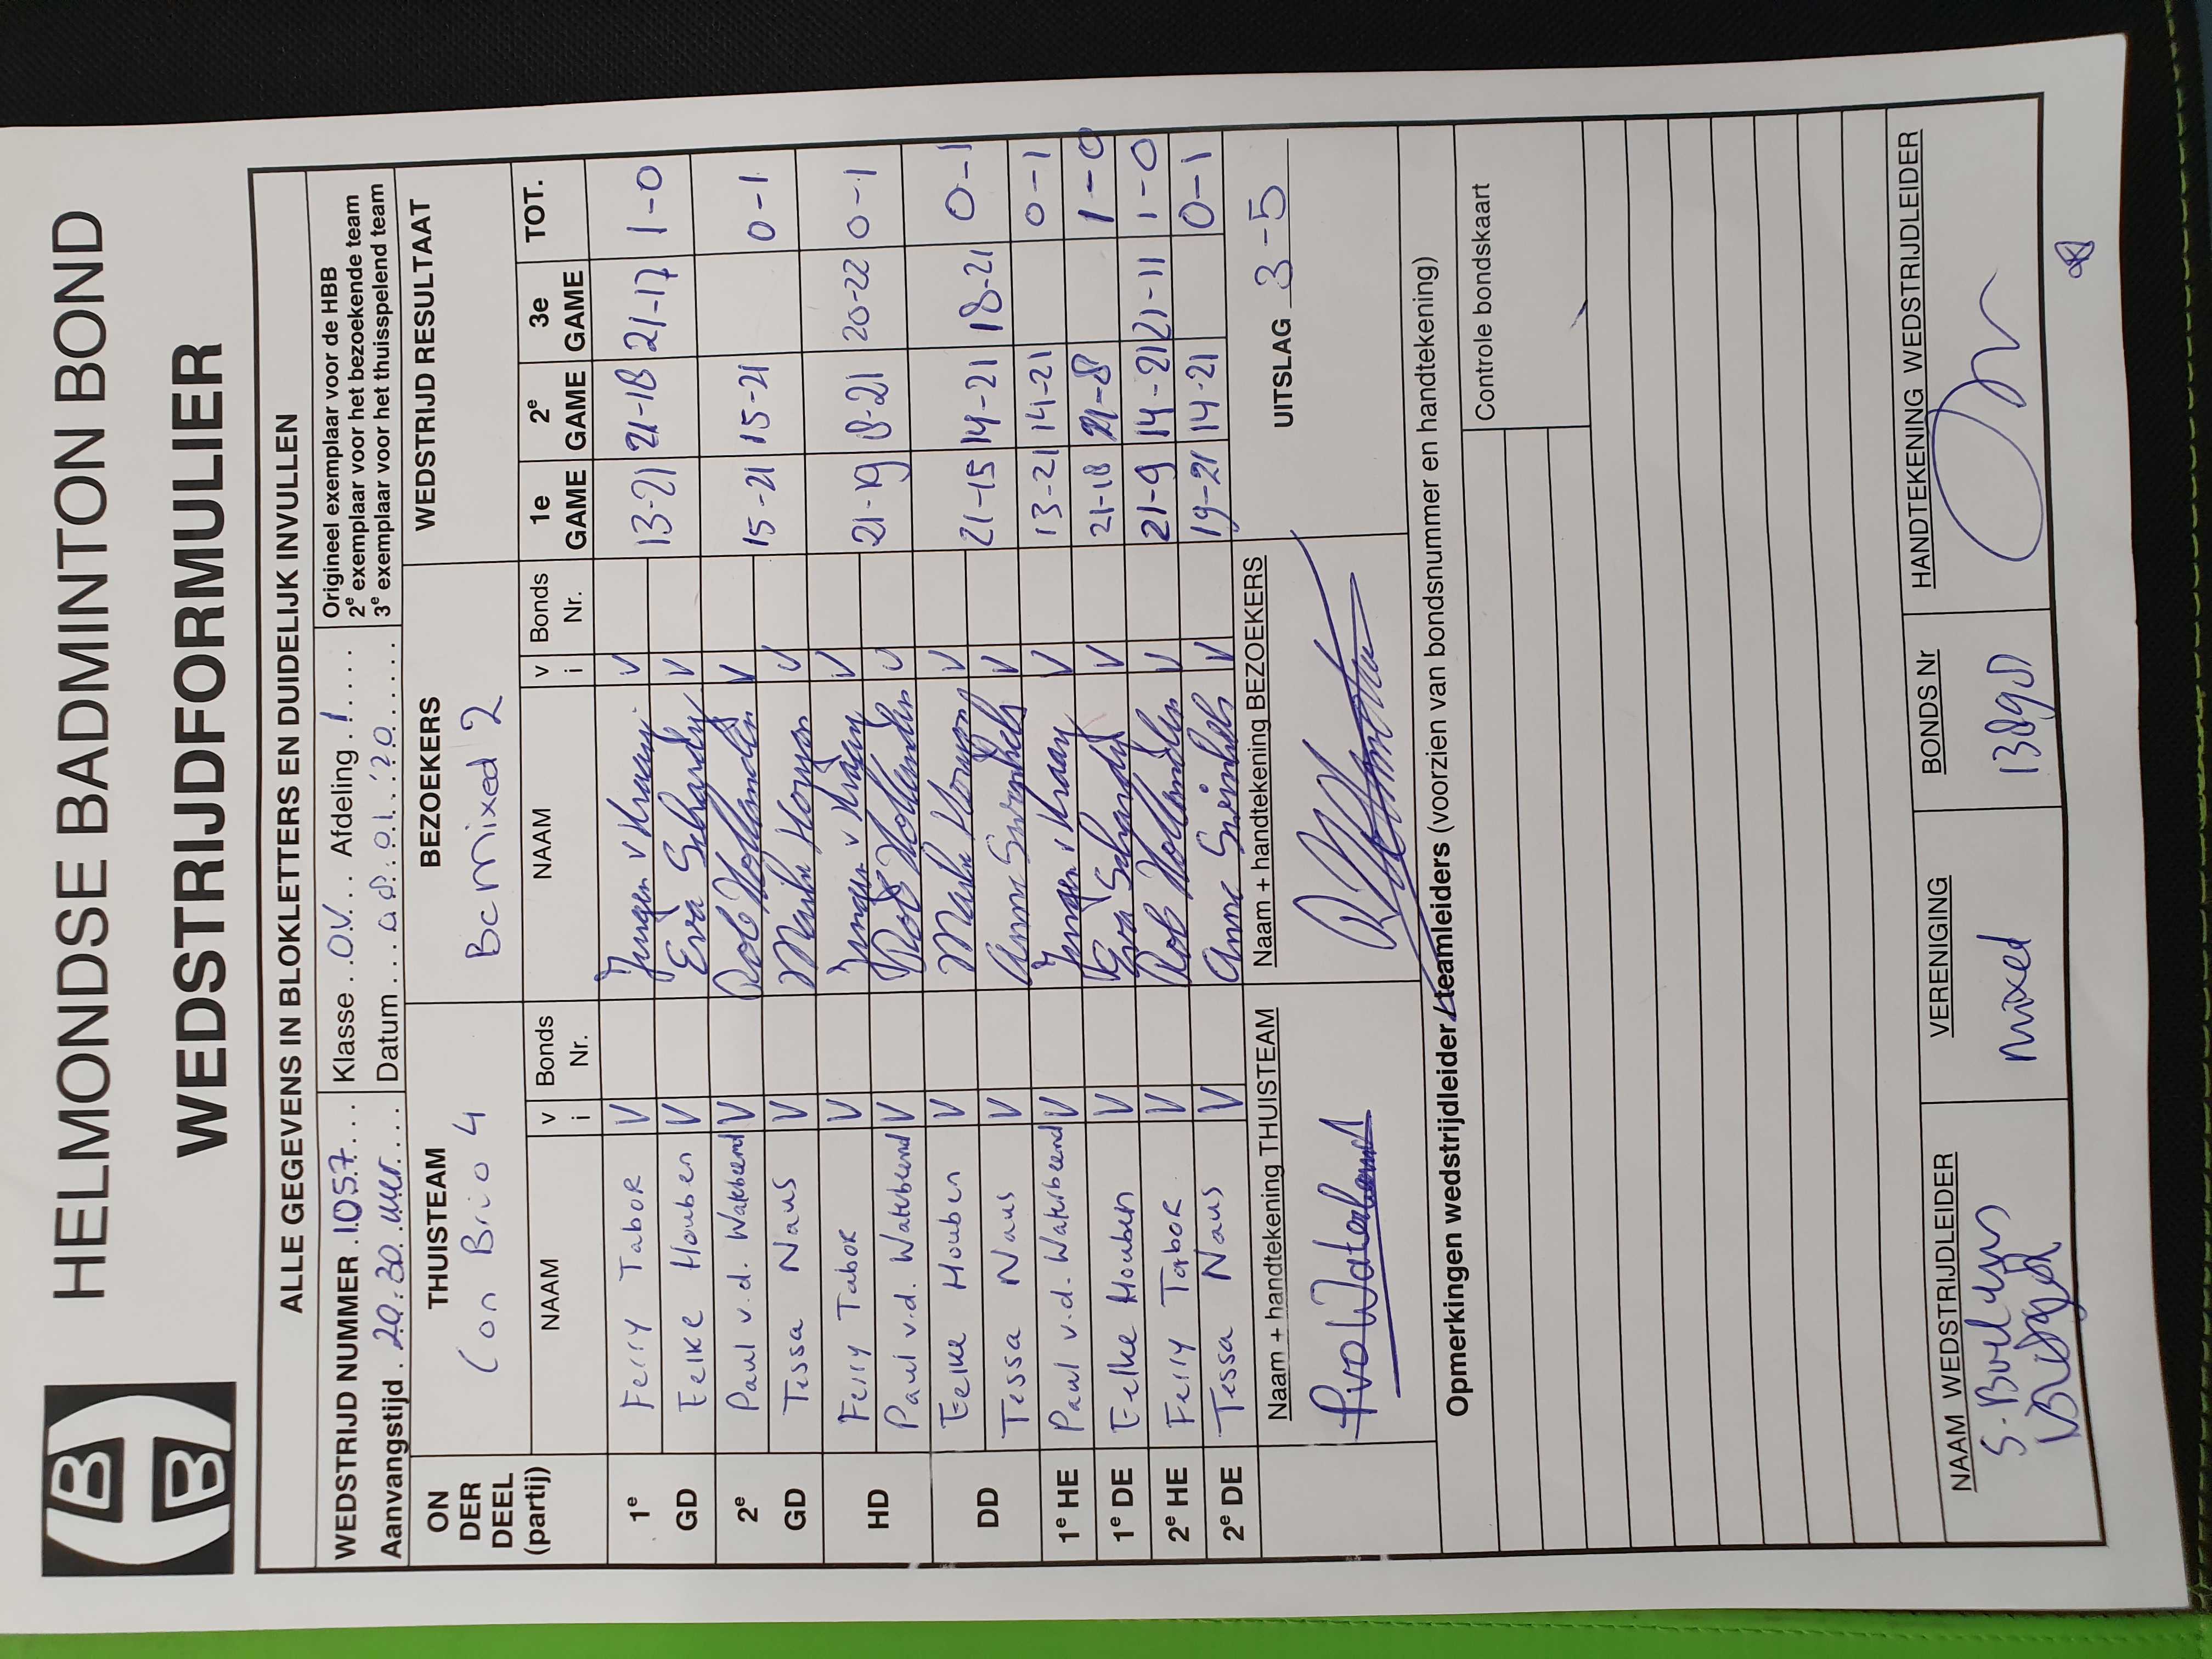 HELMONDSE BADMINTON BOND
WEDSTRIJDFORMULIER
ALLE GEGEVENS IN BLOKLETTERS EN DUIDELIJK INVULLEN
WEDSTRIJD NUMMER .1057... Klasse ..O.V... Afdeling .1.... Origineel exemplaar voor de HBB
2e exemplaar voor het bezoekende team
Aanvangstijd .20.30.uur.... Datum ....08..01..'20...... 3e exemplaar voor het thuisspelend team
ON DER DEEL (partij) THUISTEAM BEZOEKERS WEDSTRIJD RESULTAAT
Con Brio 4 BC Mixed 2
NAAM v i Bonds Nr. NAAM v i Bonds Nr. 1e GAME 2e GAME 3e GAME TOT.
1e GD Ferry Tabor V Jurgen v Kraay V 13-21 21-18 21-17 1-0
Eelke Houben V Eva Schardy V
2e GD Paul v.d. Waterbeemd V Rob Hollander V 15-21 15-21 0-1
Tessa Naus V V
HD Ferry Tabor V Jurgen v Kraay V 21-19 8-21 20-22 0-1
Paul v.d. Waterbeemd V Rob Hollander V
DD Eelke Houben V V 21-15 14-21 18-21 0-1
Tessa Naus V Anne Swinkels V
1e HE Paul v.d. Waterbeemd V Jurgen v Kraay V 13-21 14-21 0-1
1e DE Eelke Houben V Eva Schardy V 21-18 21-8 1-0
2e HE Ferry Tabor V Rob Hollander V 21-9 14-21 21-11 1-0
2e DE Tessa Naus V Anne Swinkels V 19-21 14-21 0-1
Naam + handtekening THUISTEAM Naam + handtekening BEZOEKERS UITSLAG 3-5
Opmerkingen wedstrijdleider/teamleiders (voorzien van bondsnummer en handtekening)
Controle bondskaart
NAAM WEDSTRIJDLEIDER VERENIGING BONDS Nr HANDTEKENING WEDSTRIJDLEIDER
mixed